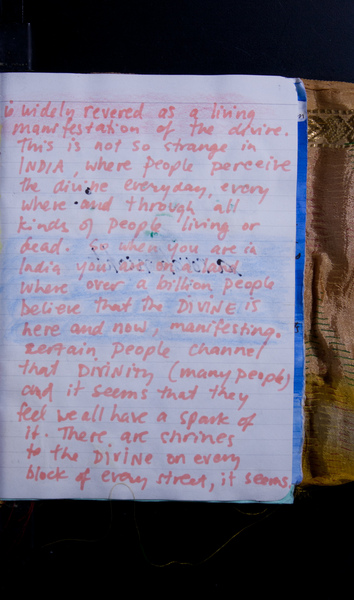 is widely revered as a living
manifestation of the divine.
This is not so strange in
INDIA, where people perceive
the divine everyday, every
where and through all
kinds of people living or
dead. So when you are in
India you are on a land
where over a billion people
believe that the DIVINE is
here and now, manifesting.
Certain people channel
that DIVINITY (many people)
and it seems that they
feel we all have a spark of
it. There are shrines
to the DIVINE on every
block of every street, it seems.